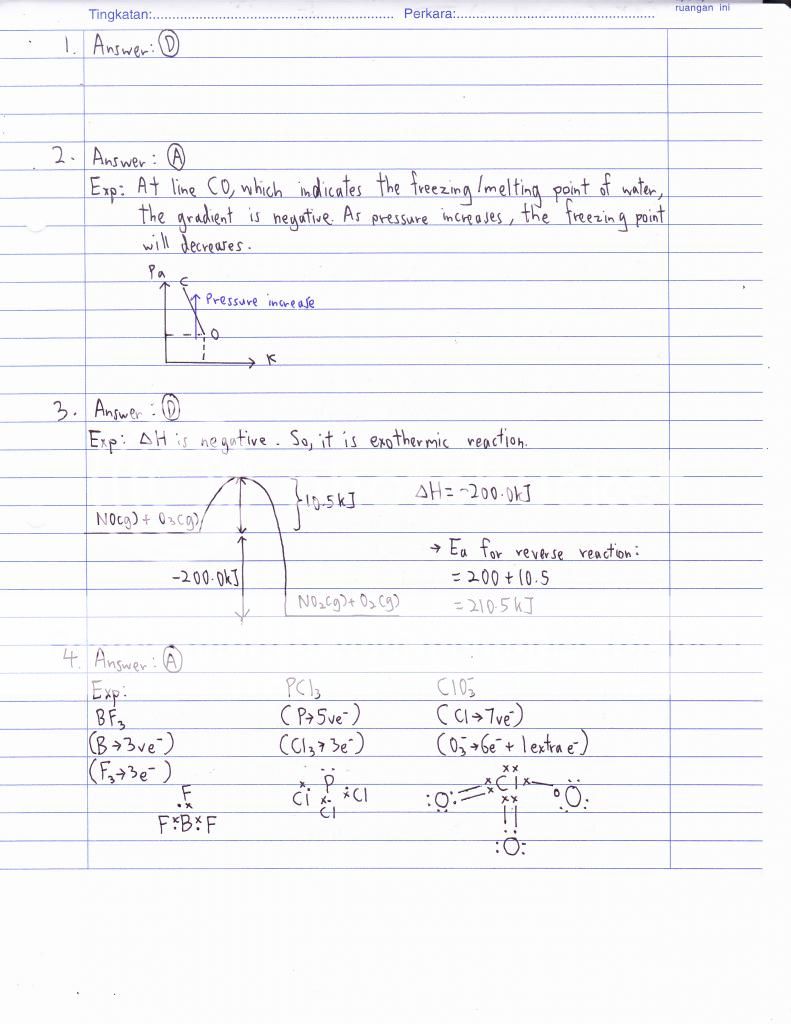 Tingkatan:........................ Perkara:........................ ruangan ini
1. Answer: D
2. Answer: A
Exp: At line CO, which indicates the freezing/melting point of water,
the gradient is negative. As pressure increases, the freezing point
will decreases.
Pa
C
Pressure increase
O
K
3. Answer: D
Exp: ΔH is negative. So, it is exothermic reaction.
}10.5kJ ΔH = -200.0kJ
NO(g) + O₃(g)
→ Ea for reverse reaction:
-200.0kJ = 200 + 10.5
NO₂(g) + O₂(g) = 210.5kJ
4. Answer: A
Exp: PCl₃ ClO₃⁻
BF₃ (P→5ve⁻) (Cl→7ve⁻)
(B→3ve⁻) (Cl₃→3e⁻) (O₃⁻→6e⁻ + 1 extra e⁻)
(F₃→3e⁻)
F P Cl
Cl Cl O O
F B F Cl
O